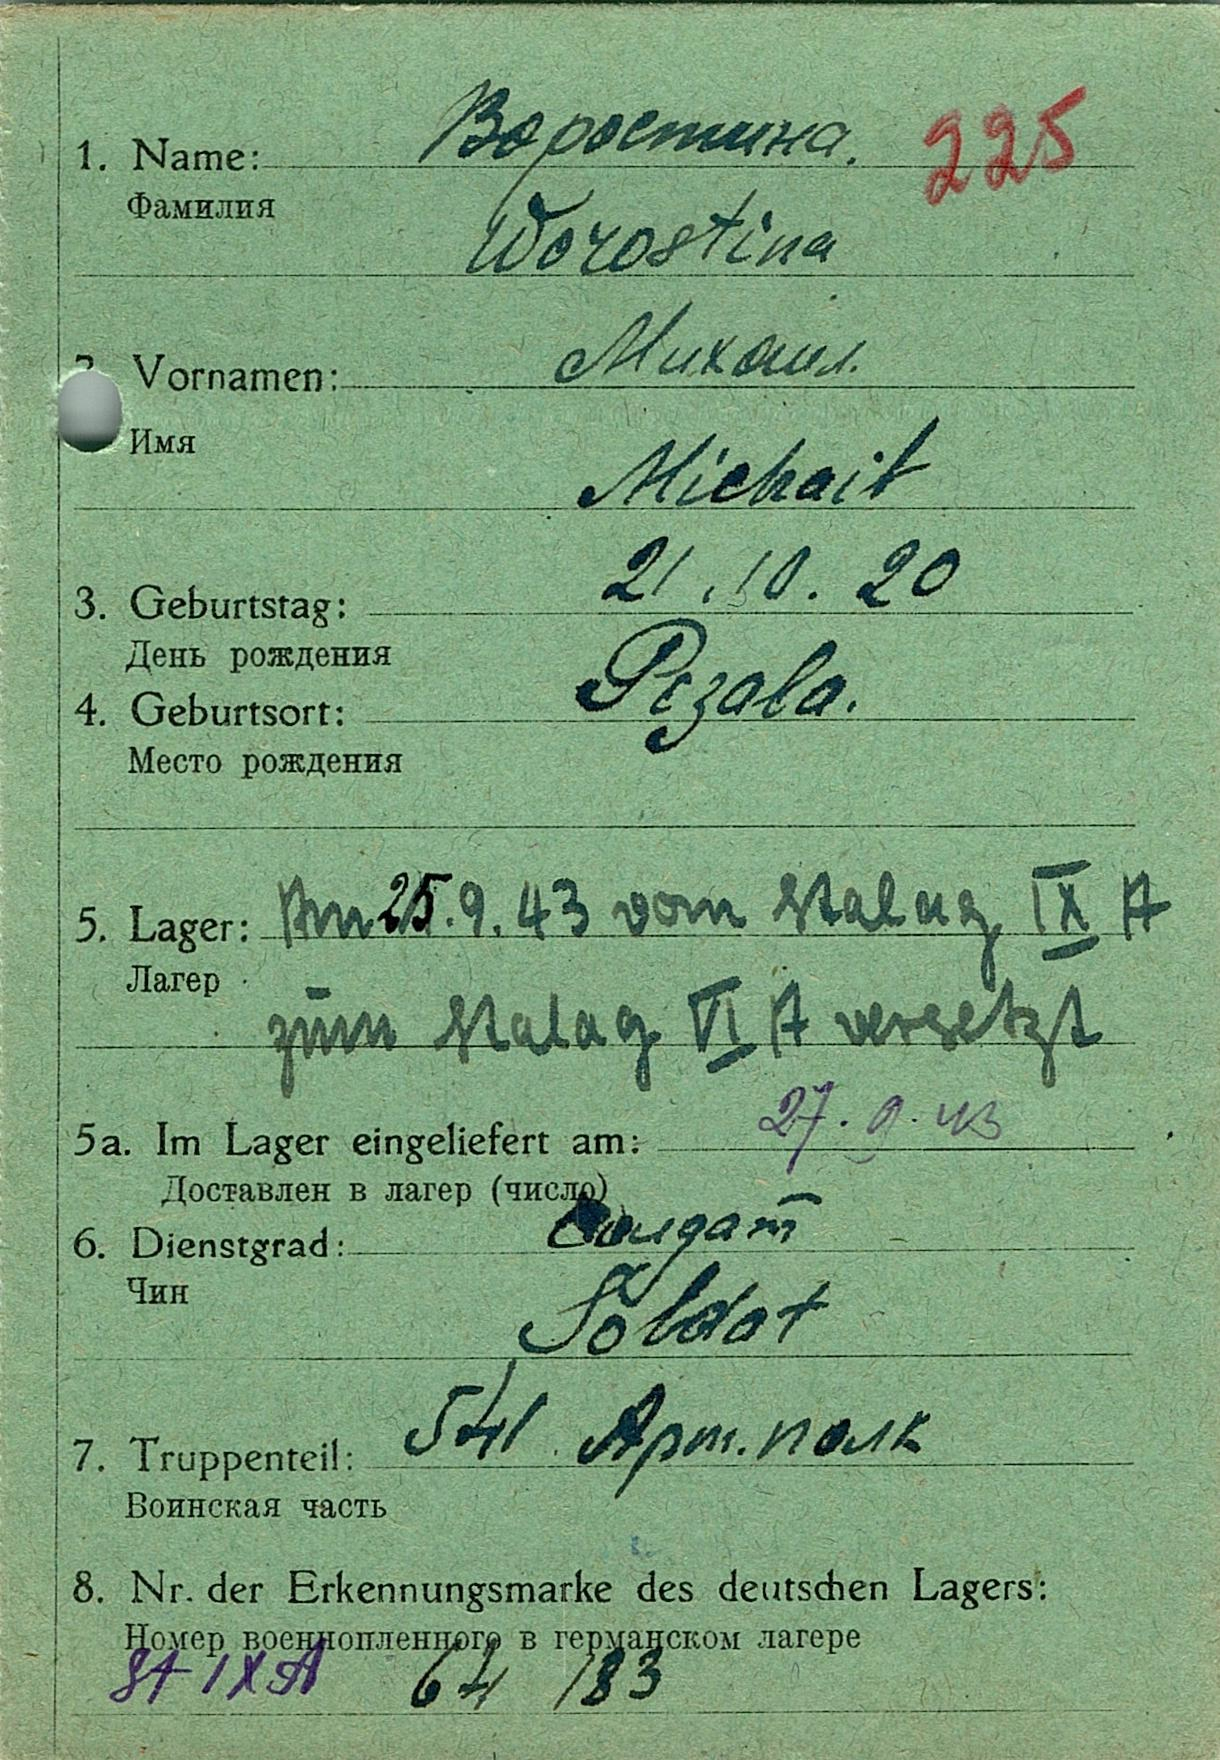 Воростина. 225
1. Name:
Фамилия
Worostina
Михаил.
2. Vornamen:
Имя
Michail
21.10.20
3. Geburtstag:
День рождения
Pezala.
4. Geburtsort:
Место рождения
5. Lager: Am 25.9.43 vom Stalag IX A
Лагер
zum Stalag VI A versetzt
5a. Im Lager eingeliefert am: 27.9.43
Доставлен в лагер (число)
6. Dienstgrad: Солдат
Чин
Soldat
7. Truppenteil: 541 Арт. полк
Воинская часть
8. Nr. der Erkennungsmarke des deutschen Lagers:
Номер военнопленного в германском лагере
St IX A